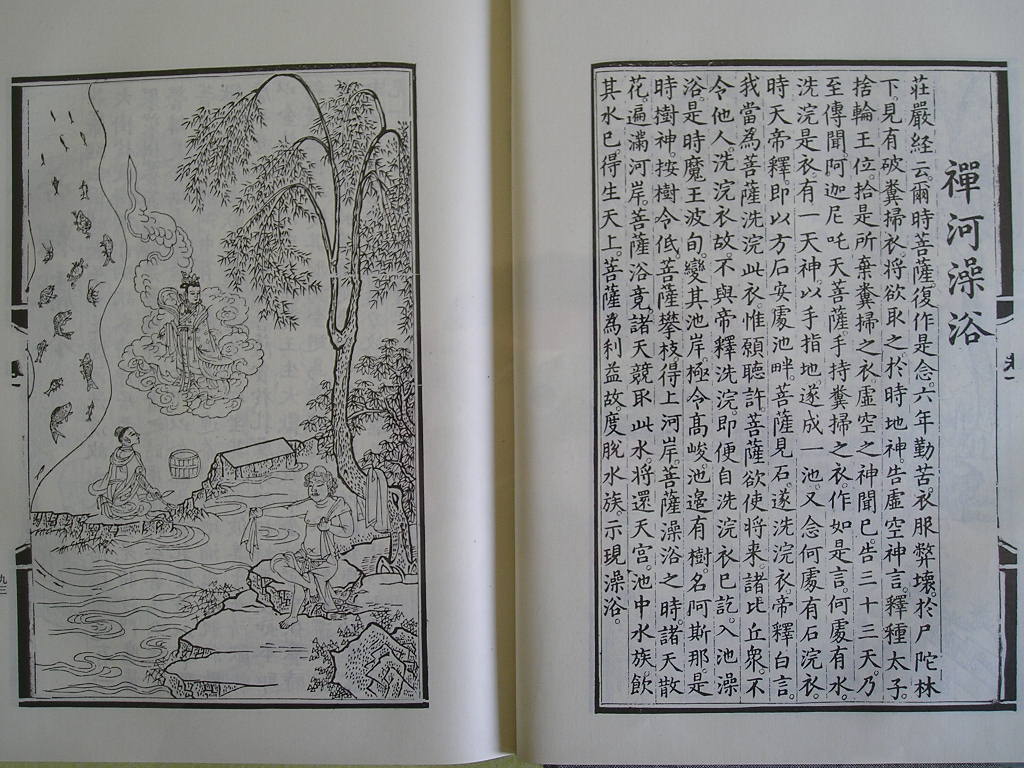 禪河澡浴
莊嚴經云。爾時菩薩。復作是念。六年勤苦。衣服弊壞。於尸陀林
下。見有破糞掃衣。將欲取之。於時地神告虛空神言。釋種太子。
捨輪王位。拾是所棄糞掃之衣。虛空之神聞已。告三十三天。乃
至傳聞阿迦尼吒天。菩薩手持糞掃之衣。作如是言。何處有水。
洗浣是衣。有一天神。以手指地。遂成一池。又念何處有石浣衣。
時天帝釋。即以方石安處池畔。菩薩見石。遂洗浣衣。帝釋白言。
我當為菩薩洗浣此衣。惟願聽許。菩薩欲使將來。諸比丘眾。不
令他人洗浣衣故。不與帝釋洗浣。即便自洗浣衣已訖。入池澡
浴。是時魔王波旬。變其池岸。極令高峻。池邊有樹。名阿斯那。是
時樹神。按樹令低。菩薩攀枝。得上河岸。菩薩澡浴之時。諸天散
花。遍滿河岸。菩薩浴竟。諸天競取此水。將還天宮。池中水族。飲
其水已。得生天上。菩薩為利益故。度脫水族。示現澡浴。
卷一
九三